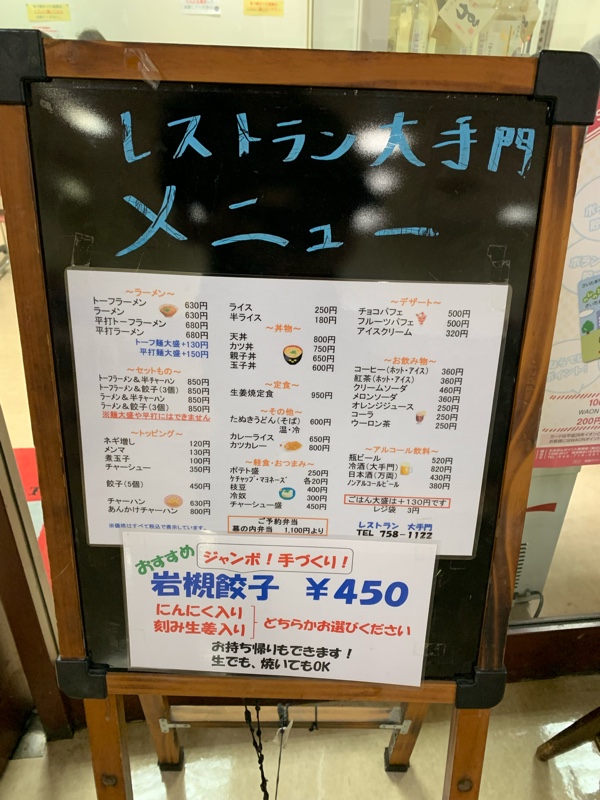 レストラン 大手門
メニュー
～ラーメン～
トーフラーメン 630円
ラーメン 630円
平打トーフラーメン 680円
平打ラーメン 680円
トーフ麺大盛+130円
平打麺大盛+150円
～セットもの～
トーフラーメン&半チャーハン 850円
トーフラーメン&餃子(3個) 850円
ラーメン&半チャーハン 850円
ラーメン&餃子(3個) 850円
※麺大盛や平打にはできません
～トッピング～
ネギ増し 120円
メンマ 130円
煮玉子 100円
チャーシュー 350円
餃子(5個) 450円
チャーハン 630円
あんかけチャーハン 800円
※価格はすべて税込で表示しています。
ライス 250円
半ライス 180円
～丼物～
天丼 800円
カツ丼 750円
親子丼 650円
玉子丼 600円
～定食～
生姜焼定食 950円
～その他～
たぬきうどん(そば) 600円
温・冷
カレーライス 650円
カツカレー 800円
～軽食・おつまみ～
ポテト盛 250円
ケチャップ・マヨネーズ 各20円
枝豆 400円
冷奴 300円
チャーシュー盛 450円
ご予約弁当
幕の内弁当 1,100円より
～デザート～
チョコパフェ 500円
フルーツパフェ 500円
アイスクリーム 320円
～お飲み物～
コーヒー(ホット・アイス) 360円
紅茶(ホット・アイス) 360円
クリームソーダ 460円
メロンソーダ 360円
オレンジジュース 250円
コーラ 250円
ウーロン茶 250円
～アルコール飲料～
瓶ビール 520円
冷酒(大手門) 820円
日本酒(万両) 430円
ノンアルコールビール 380円
ごはん大盛は+130円です
レジ袋 3円
レストラン 大手門
TEL 758-1122
おすすめ
ジャンボ!手づくり!
岩槻餃子 ￥450
にんにく入り
刻み生姜入り
どちらかお選びください
お持ち帰りもできます!
生でも、焼いてもOK